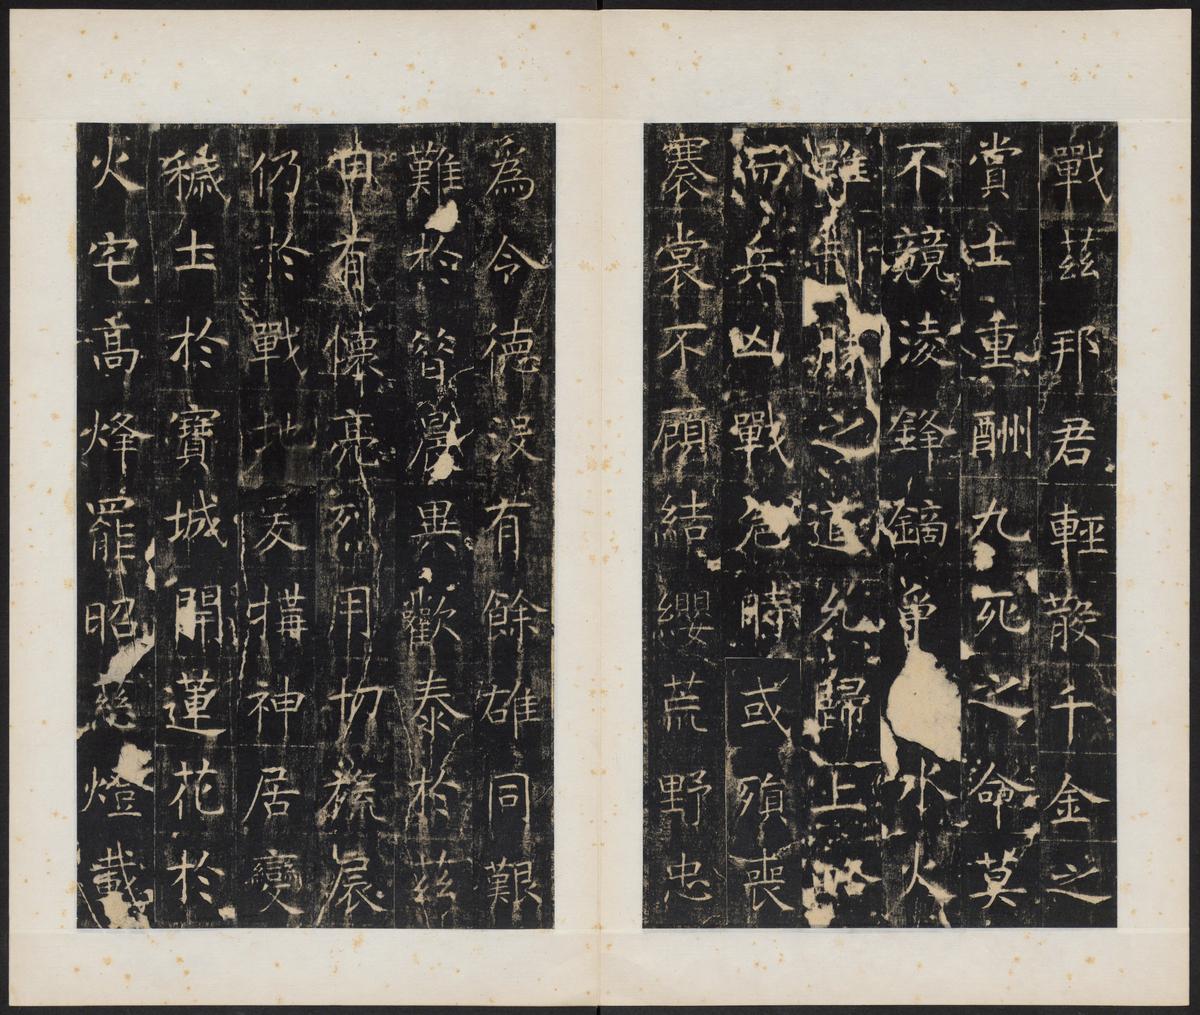 戰茲邦君輕散千金之
賞士重酬九死之命莫
不競淩鋒鏑爭水火
雖制勝之道允歸上略
而兵凶戰危時或殞喪
褰裳不顧結纓荒野忠
為令德沒有餘雄同艱
難於昔晨異歡泰於茲
日有懷亮烈用切旒扆
仍於戰地爰構神居變
穢土於寶城開蓮花於
火宅高烽罷昭慈燈載